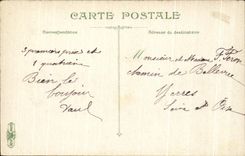 CARTE POSTALE
Correspondance
Adresse du destinataire
3 premiers prix et
1 quatrième
Bien le
bonjour
Paul
Monsieur et Madame F. Féron
chemin de Bellevue
Yerres
Seine et Oise